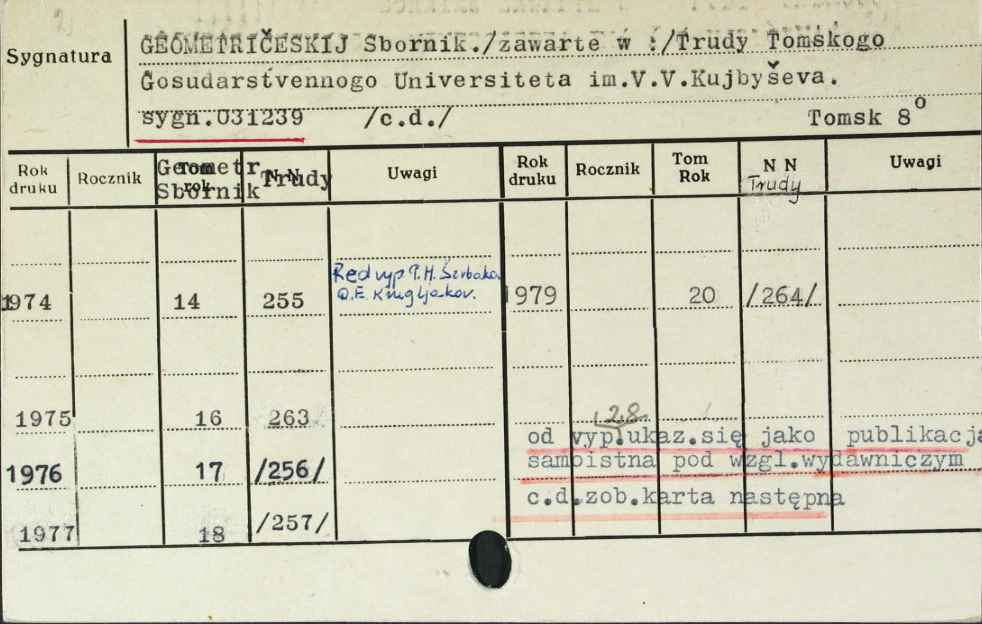 Sygnatura
GEOMETRIČESKIJ Sbornik./zawarte w :/Trudy Tomskogo
Gosudarstvennogo Universiteta im.V.V.Kujbyševa.
sygn.031239 /c.d./ Tomsk 8°
Rok druku Rocznik Tom rok Geometr. Sbornik N N Trudy Uwagi Rok druku Rocznik Tom Rok N N Trudy Uwagi
Red vyp
1974 14 255 1979 20 /264/
1975 16 263
28
od vyp.ukaz.się jako publikacja
1976 17 /256/ sambistna pod wzgl.wydawniczym
c.d.zob.karta następna
1977 18 /257/